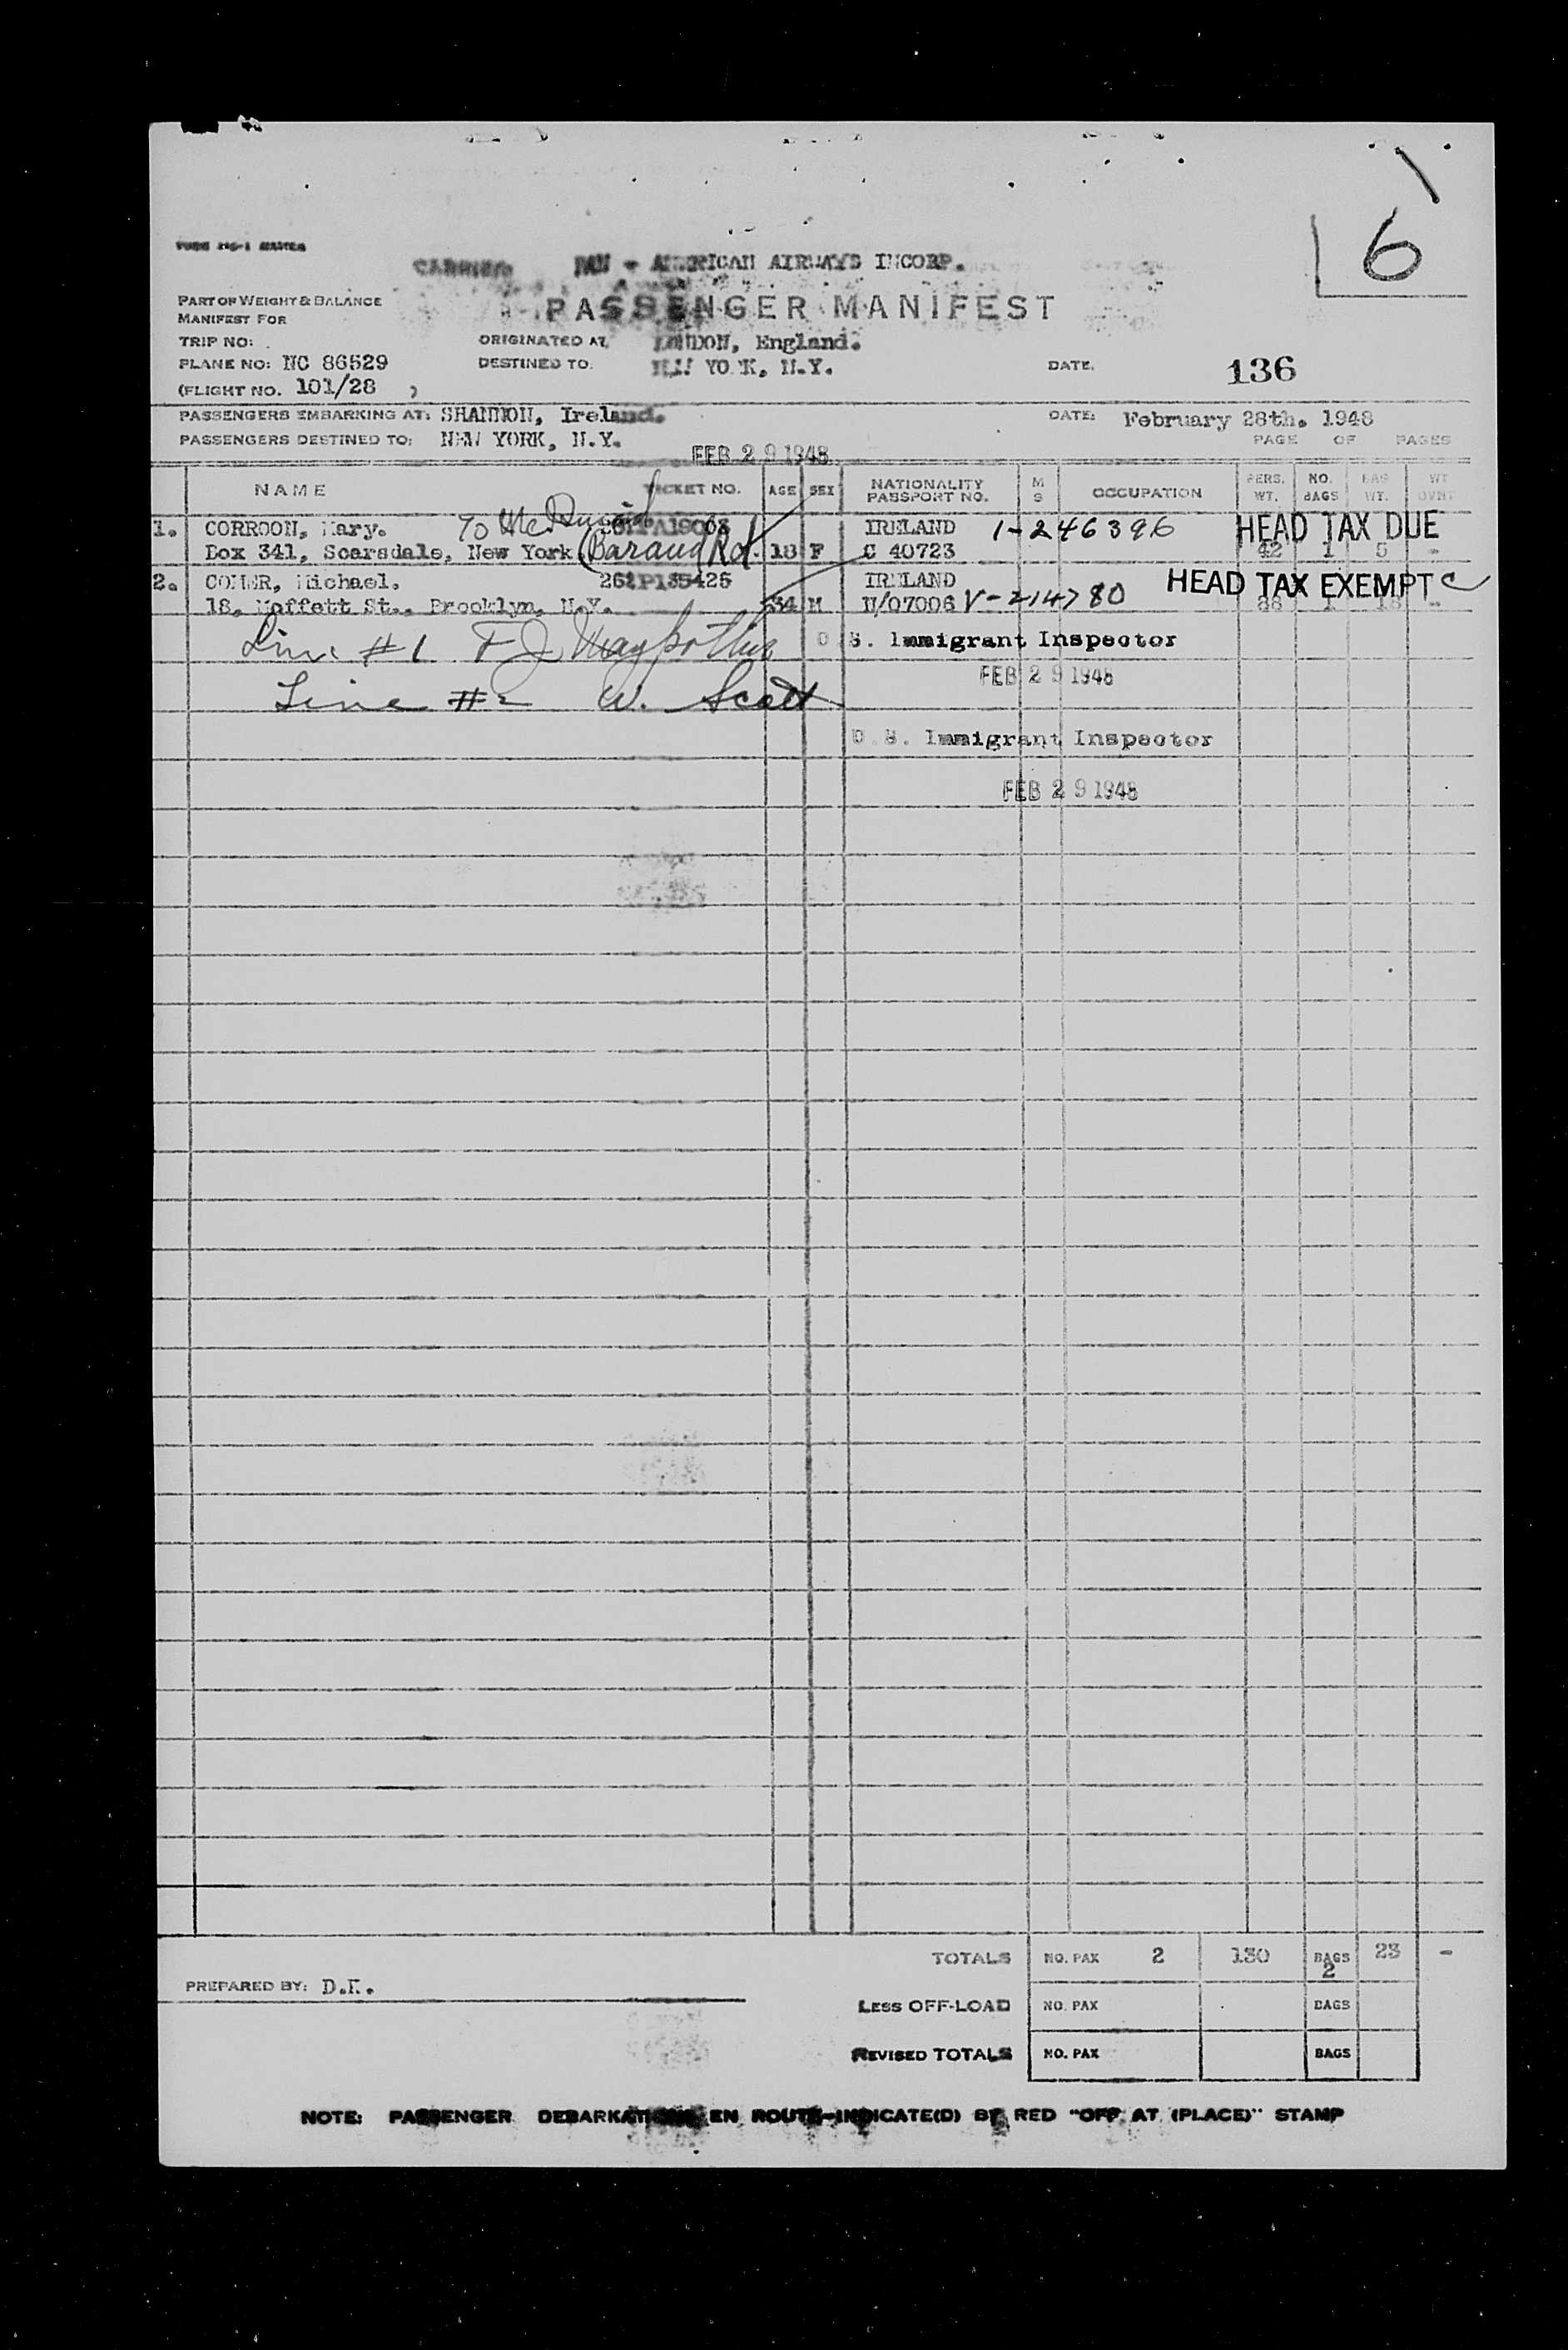 6
CARRIER PAN - AMERICAN AIRWAYS INCORP.
PART OF WEIGHT & BALANCE
MANIFEST FOR
PASSENGER MANIFEST
TRIP NO: ORIGINATED AT LONDON, England.
PLANE NO: NC 86529 DESTINED TO: NEW YORK, N.Y. DATE. 136
(FLIGHT NO. 101/28 )
PASSENGERS EMBARKING AT: SHANNON, Ireland. DATE: February 28th. 1948
PASSENGERS DESTINED TO: NEW YORK, N.Y. PAGE OF PAGES
FEB 29 1948
NAME TICKET NO. AGE SEX NATIONALITY PASSPORT NO. M S OCCUPATION PERS. WT. NO. BAGS BAG WT. WT
1. CORROON, Mary. To IRELAND 1-246396 HEAD TAX DUE
Box 341, Scarsdale, New York (Baraud Rd. 18 F C 40723 42 1 5 -
2. COMER, Michael. IRELAND HEAD TAX EXEMPT C
18, Moffett St., Brooklyn, N.Y. 34 M V-214780 88 1 18 -
Line #1 F J U. S. Immigrant Inspector
FEB 29 1948
Line #2 W. Scott
U. S. Immigrant Inspector
FEB 29 1948
TOTALS NO. PAX 2 130 BAGS 2 23 -
PREPARED BY:
LESS OFF-LOAD NO. PAX BAGS
REVISED TOTALS NO. PAX BAGS
NOTE: PASSENGER DEBARKATIONS EN ROUTE-INDICATE(D) BY RED "OFF AT (PLACE)" STAMP